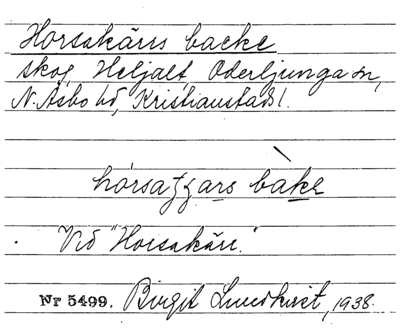 Horsakärrs backe
skog, Heljalt, Oderljunga sn,
N. Åsbo hd, Kristianstads l.
backe
Vid "Horsakärr."
Nr 5499. Birgit Lundkvist, 1938.